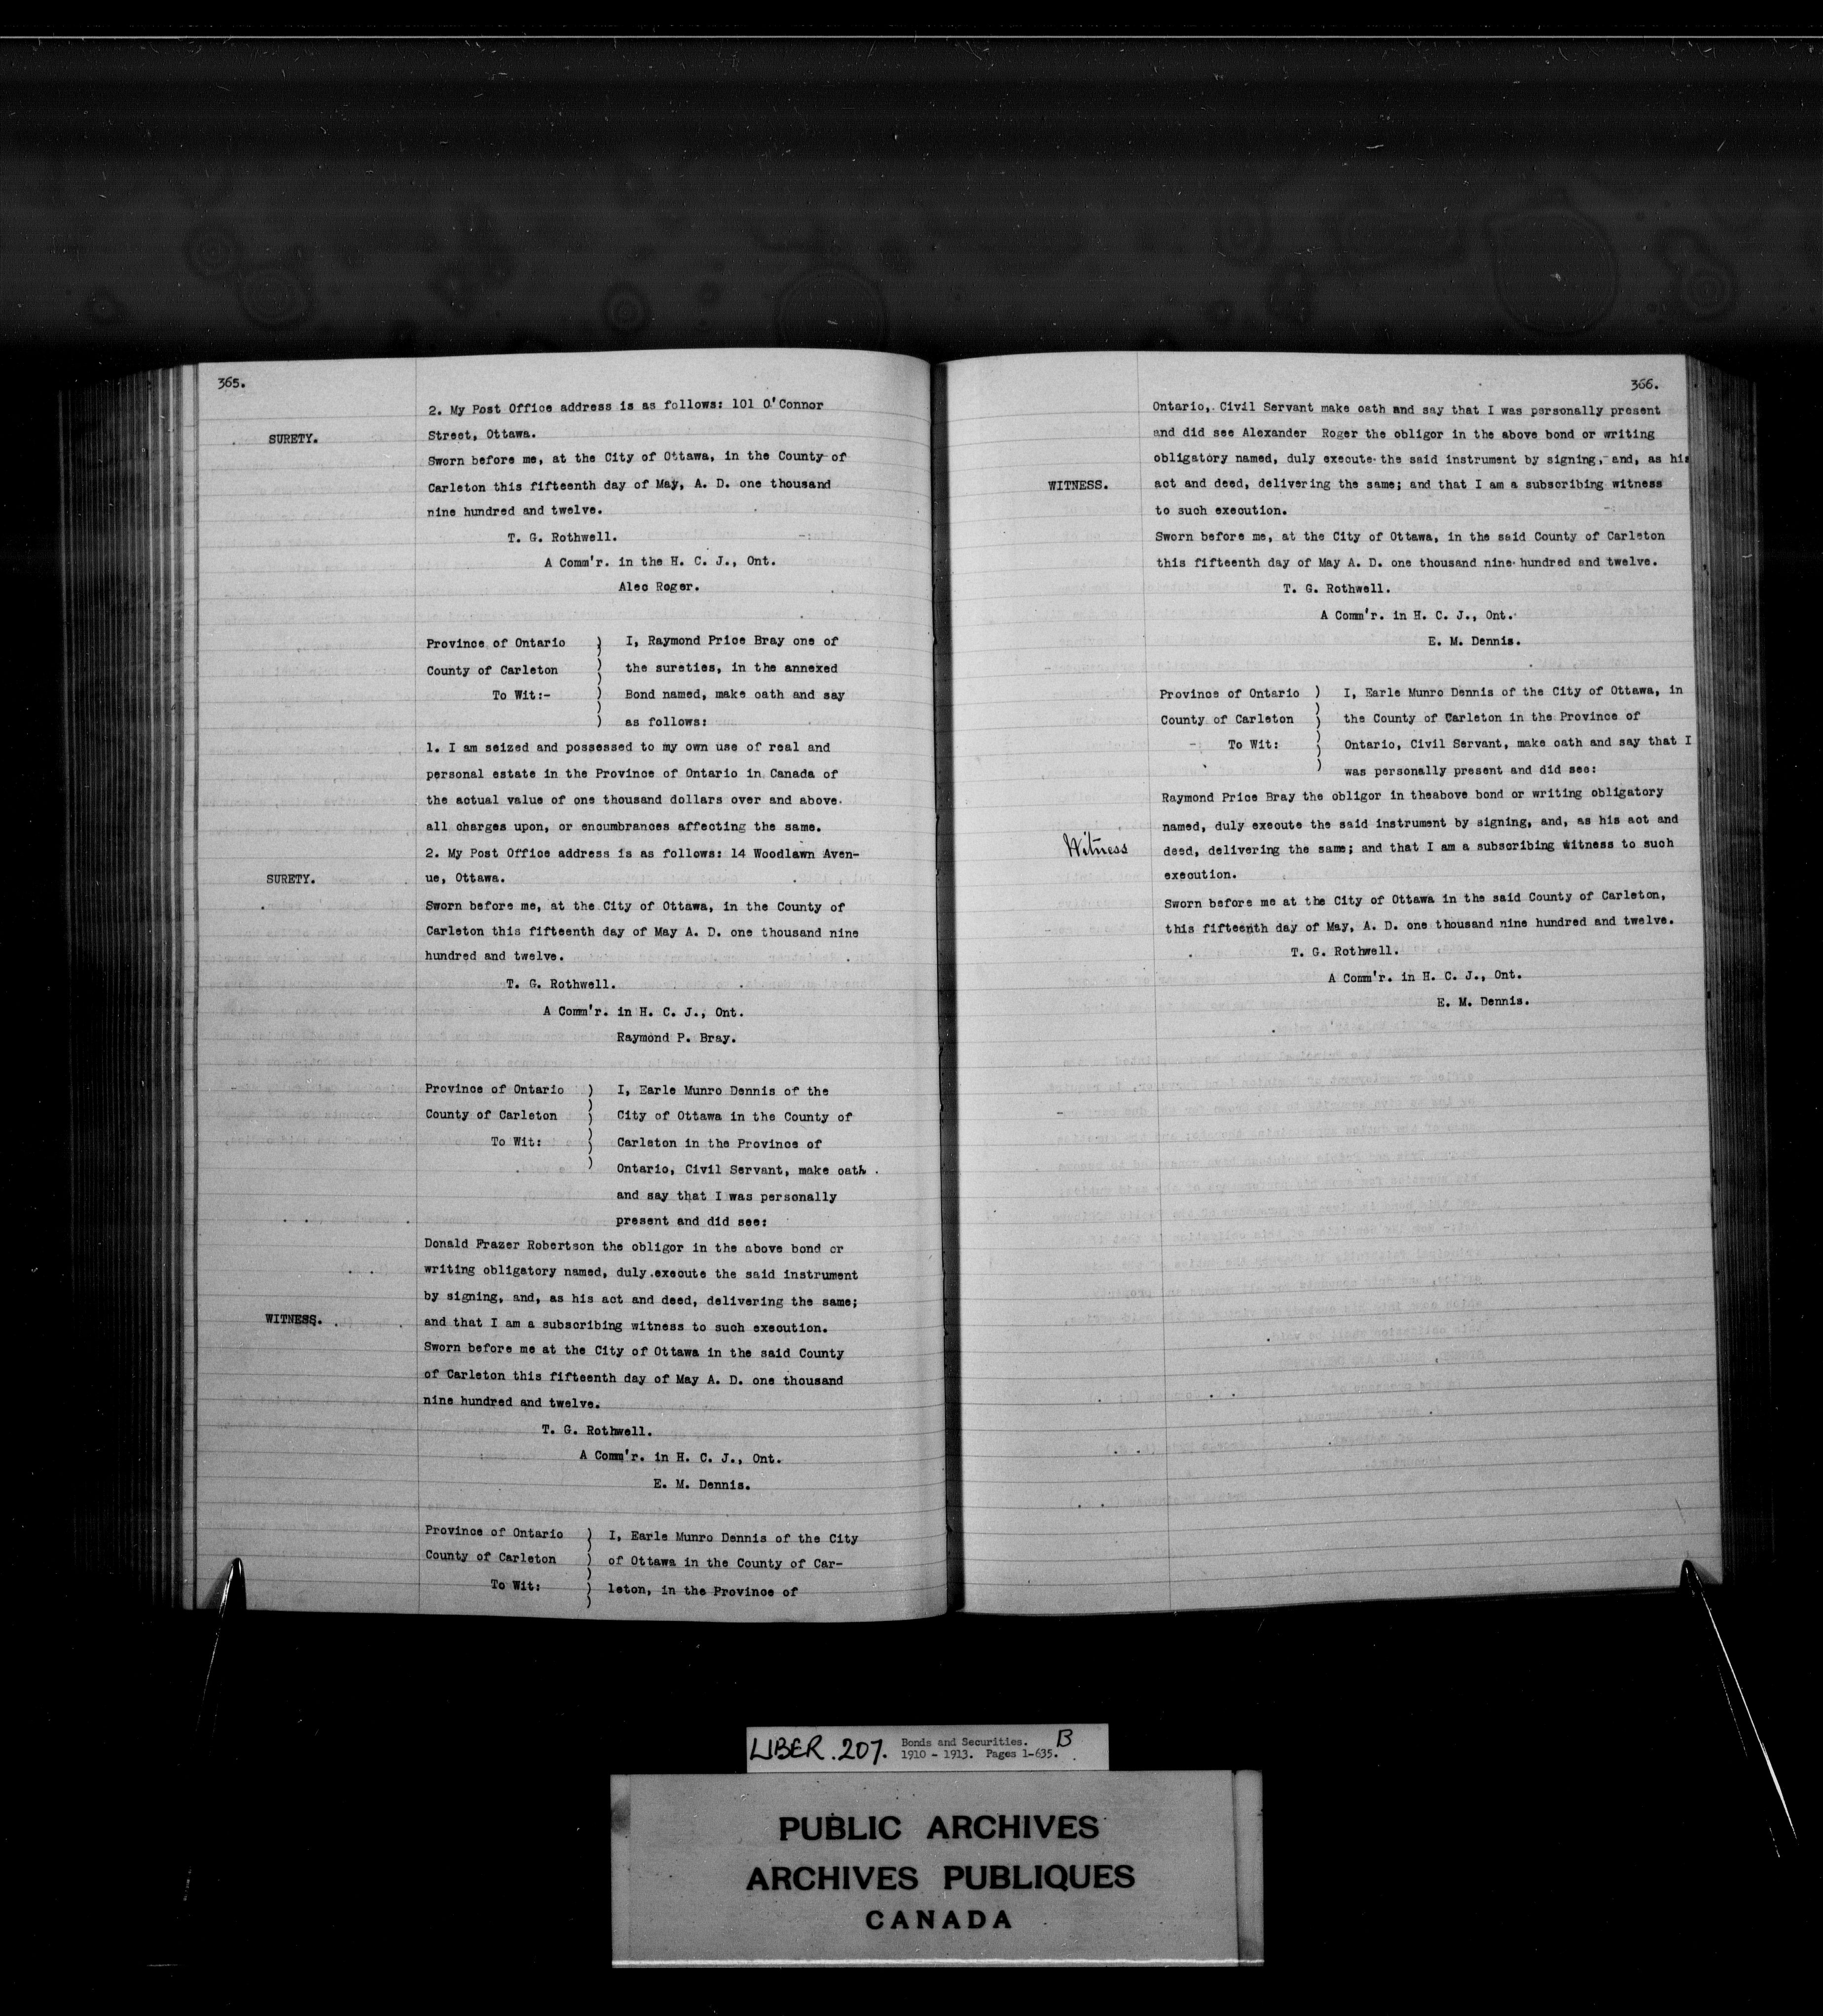 365.
2. My Post Office address is as follows: 101 O'Connor
SURETY.
Street, Ottawa.
Sworn before me, at the City of Ottawa, in the County of
Carleton this fifteenth day of May, A. D. one thousand
nine hundred and twelve.
T. G. Rothwell.
A Comm'r. in the H. C. J., Ont.
Alec Roger.
Province of Ontario ) I, Raymond Price Bray one of
County of Carleton ) the sureties, in the annexed
To Wit:- ) Bond named, make oath and say
) as follows:
1. I am seized and possessed to my own use of real and
personal estate in the Province of Ontario in Canada of
the actual value of one thousand dollars over and above
all charges upon, or encumbrances affecting the same.
2. My Post Office address is as follows: 14 Woodlawn Aven-
SURETY.
ue, Ottawa.
Sworn before me, at the City of Ottawa, in the County of
Carleton this fifteenth day of May A. D. one thousand nine
hundred and twelve.
T. G. Rothwell.
A Comm'r. in H. C. J., Ont.
Raymond P. Bray.
Province of Ontario ) I, Earle Munro Dennis of the
County of Carleton ) City of Ottawa in the County of
To Wit: ) Carleton in the Province of
) Ontario, Civil Servant, make oath
and say that I was personally
present and did see:
Donald Frazer Robertson the obligor in the above bond or
writing obligatory named, duly execute the said instrument
by signing, and, as his act and deed, delivering the same;
WITNESS.
and that I am a subscribing witness to such execution.
Sworn before me at the City of Ottawa in the said County
of Carleton this fifteenth day of May A. D. one thousand
nine hundred and twelve.
T. G. Rothwell.
A Comm'r. in H. C. J., Ont.
E. M. Dennis.
Province of Ontario ) I, Earle Munro Dennis of the City
County of Carleton ) of Ottawa in the County of Car-
To Wit: ) leton, in the Province of
366.
Ontario, Civil Servant make oath and say that I was personally present
and did see Alexander Roger the obligor in the above bond or writing
obligatory named, duly execute the said instrument by signing, and, as his
WITNESS.
act and deed, delivering the same; and that I am a subscribing witness
to such execution.
Sworn before me, at the City of Ottawa, in the said County of Carleton
this fifteenth day of May A. D. one thousand nine hundred and twelve.
T. G. Rothwell.
A Comm'r. in H. C. J., Ont.
E. M. Dennis.
Province of Ontario ) I, Earle Munro Dennis of the City of Ottawa, in
County of Carleton ) the County of Carleton in the Province of
To Wit: ) Ontario, Civil Servant, make oath and say that I
) was personally present and did see:
Raymond Price Bray the obligor in theabove bond or writing obligatory
named, duly execute the said instrument by signing, and, as his act and
Witness
deed, delivering the same; and that I am a subscribing witness to such
execution.
Sworn before me at the City of Ottawa in the said County of Carleton,
this fifteenth day of May, A. D. one thousand nine hundred and twelve.
T. G. Rothwell.
A Comm'r. in H. C. J., Ont.
E. M. Dennis.
LIBER. 207. Bonds and Securities. B
1910 - 1913. Pages 1-635.
PUBLIC ARCHIVES
ARCHIVES PUBLIQUES
CANADA